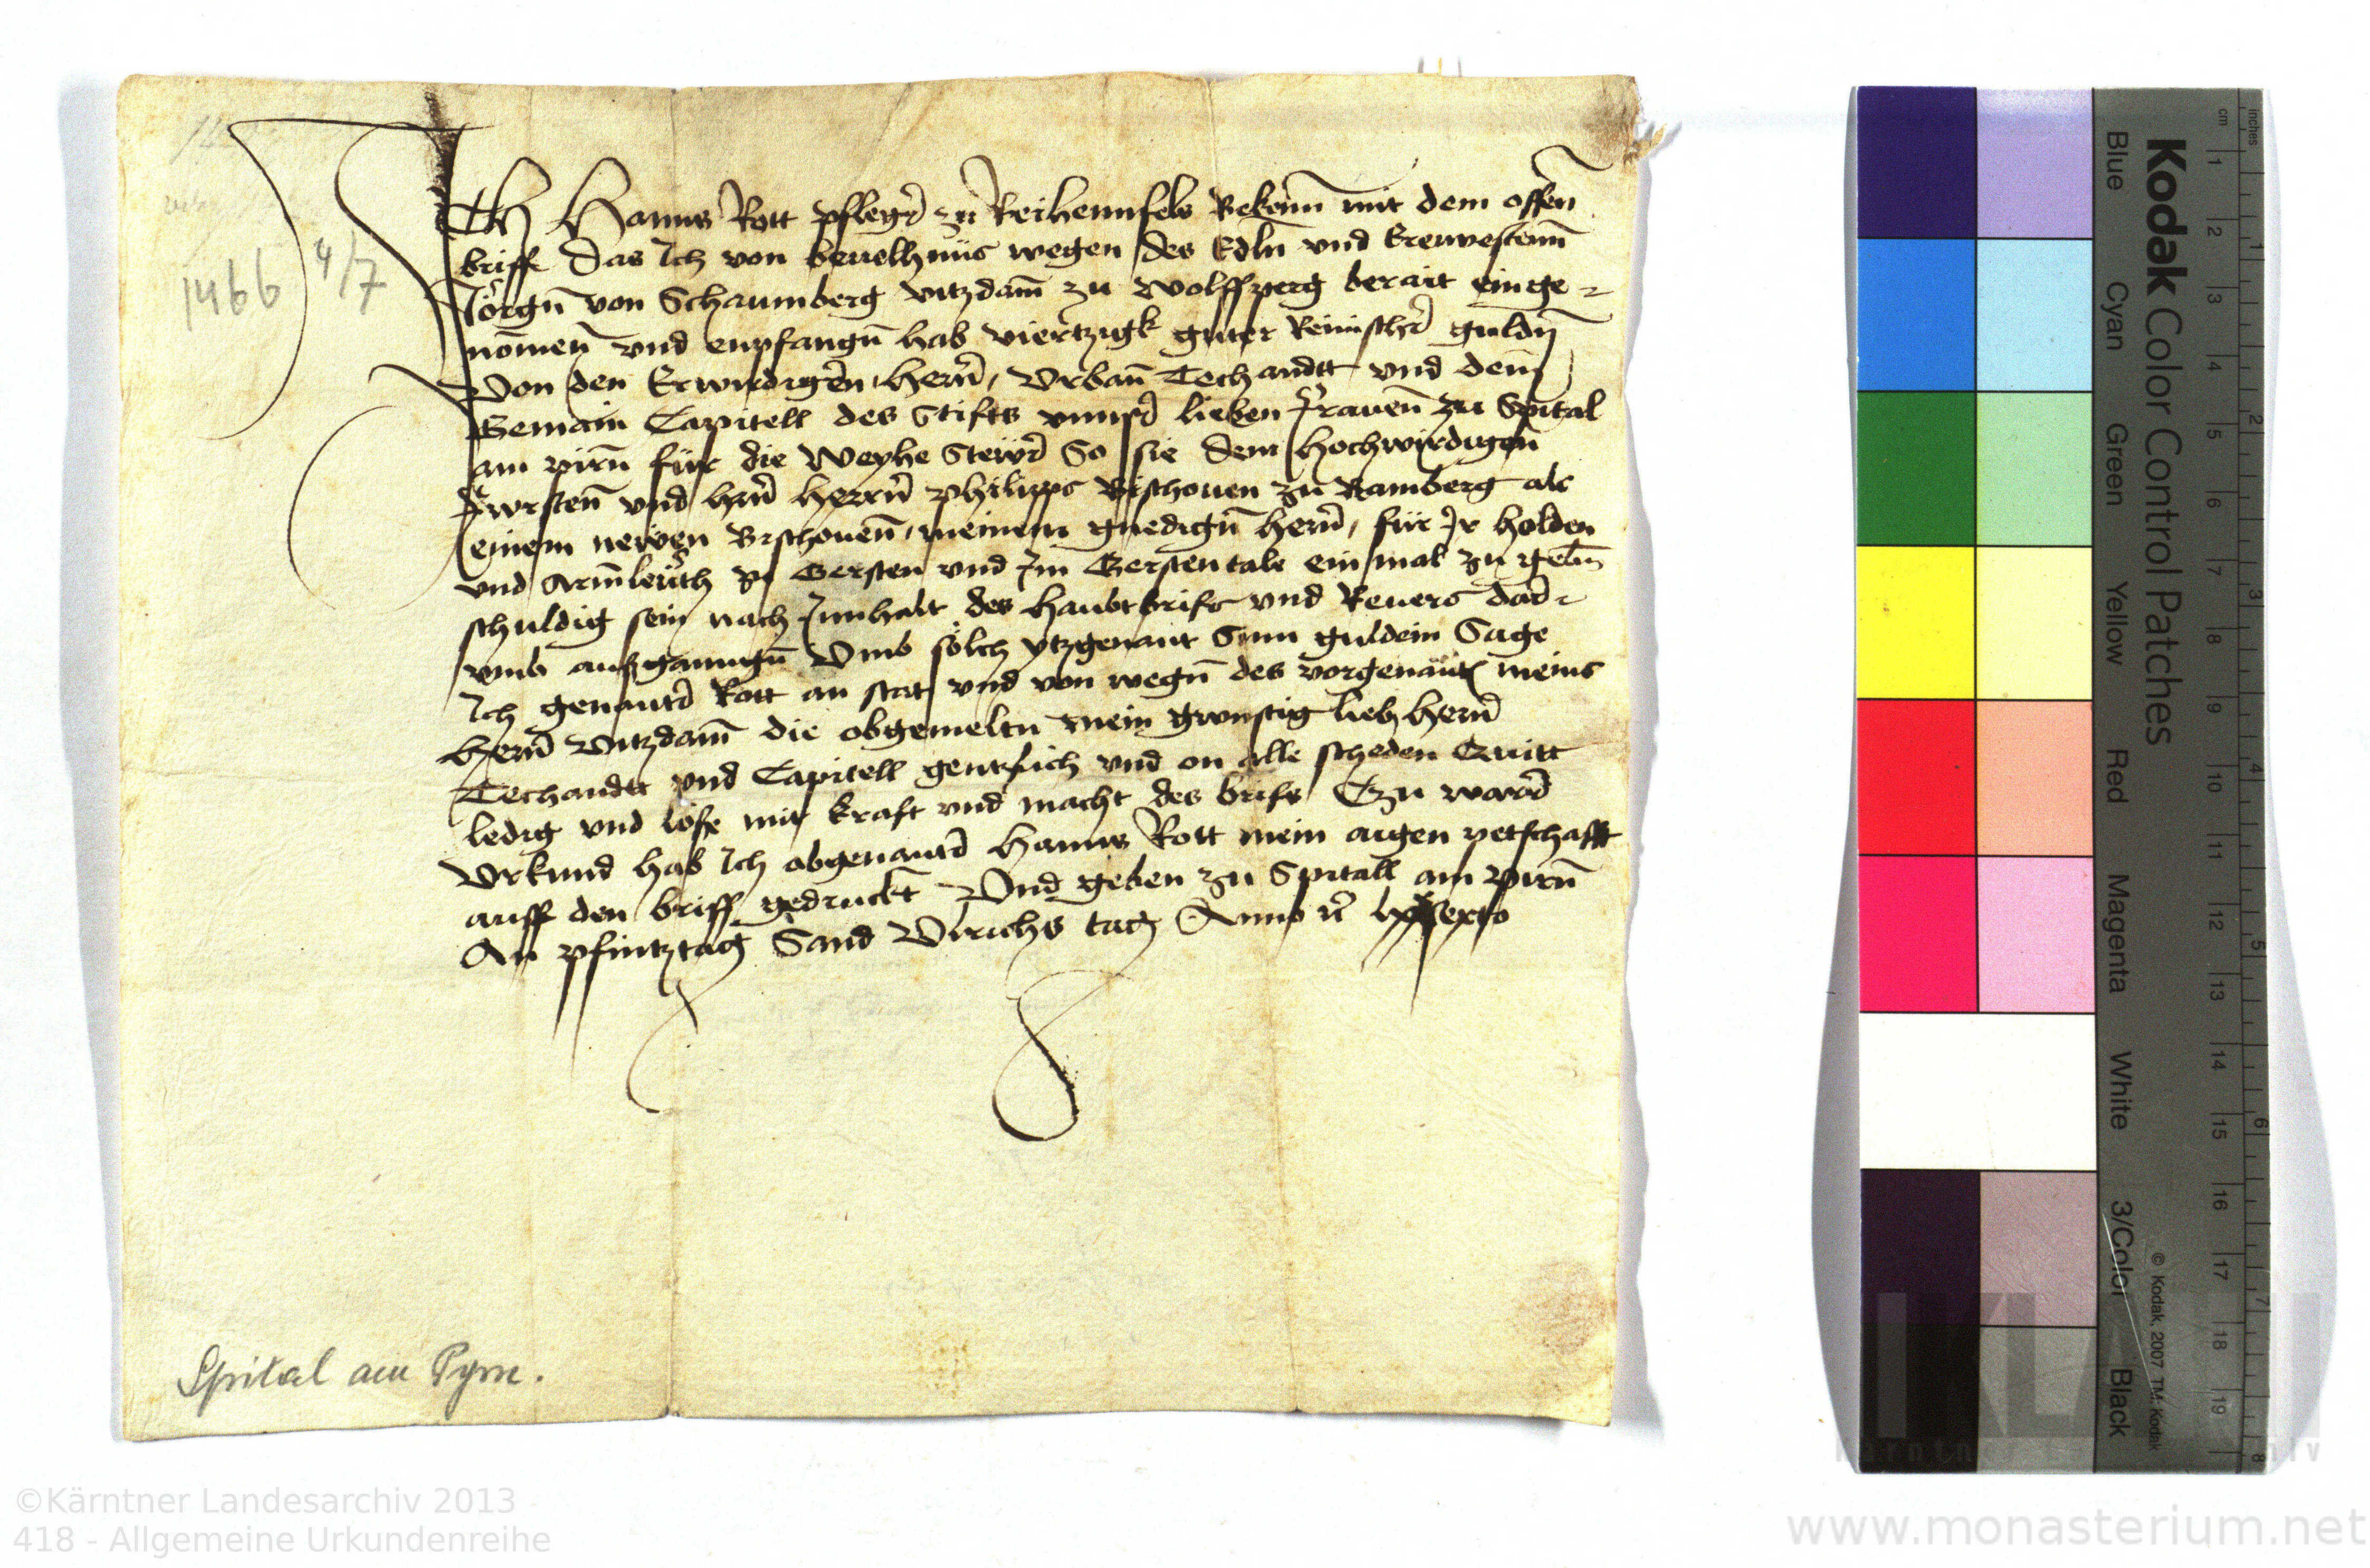 1466 4/7
Ich Hanns Rott pfleger zu Reihennfels Bekenn mit dem offen
briff Das Ich von beuelhnüs wegen des Edln vnd Erenvestenn
Jörgn von Schaumberg vitzdam zu Wolffperg berait einge-
nomen vnd enpfangn hab viertzigk guter Reinischer guldn
Von den Erwirdigen hern, Vrban Techandtt vnd dem
Gemain Capitell des Stifts vnnser lieben frauen zu Spital
am pirn für die Weyhe Stewr So sie dem hochwirdigen
Fürsten vnd hern herrn philipps Bischouen zu Bamberg als
einem newen Bischouen, meinem gnedign hern, für Ir holden
vnd Armleuth zu Gersten vnd Im Gerstentale ein mal zu geben
schuldig sein nach Innhalt des haubtbrifs vnd Reuers dar-
vmb außganngn Vmb sölch ytzgenant Sum guldein Sage
Ich genanter Rott an stat vnd von wegn des vorgenantn meins
hern Vitzdam die obgemeltn mein gunstig lieb hern
Techandtt vnd Capitell gentzlich vnd on alle scheden Quitt
ledig vnd loße mit kraft vnd macht des brifs Czu warer
Vrkund hab Ich obgenanter Hanns Rott mein aigen petschafft
auff den briff gedruckt Vnd geben zu Spitall am pirn
An pfintztag Sand Vlrichs tag Anno &c lxsexto
Spital am Pyrn.
Kodak Color Control Patches
Blue Cyan Green Yellow Red Magenta White 3/Color Black
© Kodak, 2007 TM: Kodak
cm 1 2 3 4 5 6 7 8 9 10 11 12 13 14 15 16 17 18 19
inches 1 2 3 4 5 6 7 8
©Kärntner Landesarchiv 2013
418 - Allgemeine Urkundenreihe
www.monasterium.net